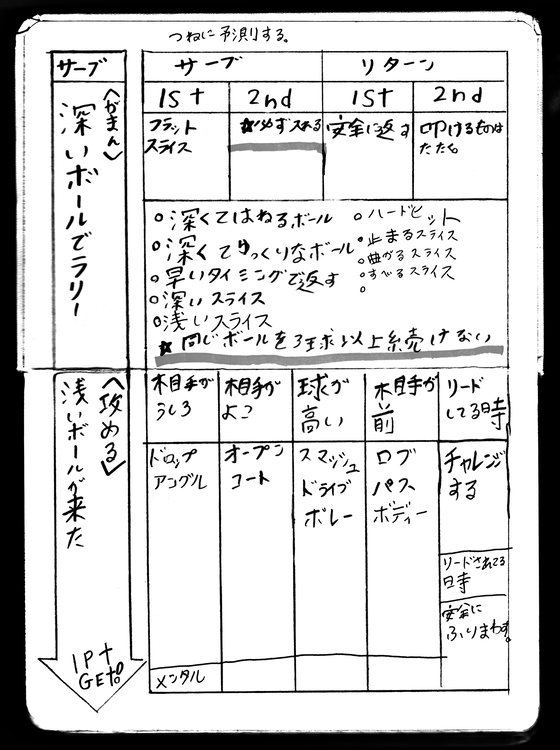 つねに予測する。
サーブ
サーブ
リターン
1st
2nd
1st
2nd
フラット
スライス
☆必ず入れる
安全に返す
叩けるものは
たたく。
〈がまん〉
深いボールでラリー
○深くてはねるボール
○深くてゆっくりなボール
○早いタイミングで返す
○深いスライス
○浅いスライス
○ハードヒット
○止まるスライス
○曲がるスライス
○すべるスライス
○
☆同じボールを3球以上続けない
〈攻める〉
浅いボールが来た
1Pt
GET!!
相手が
うしろ
相手が
よこ
球が
高い
相手が
前
リード
してる時
ドロップ
アングル
オープン
コート
スマッシュ
ドライブ
ボレー
ロブ
パス
ボディー
チャレンジ
する
リードされてる
時
安全に
ふりまわす。
メンタル